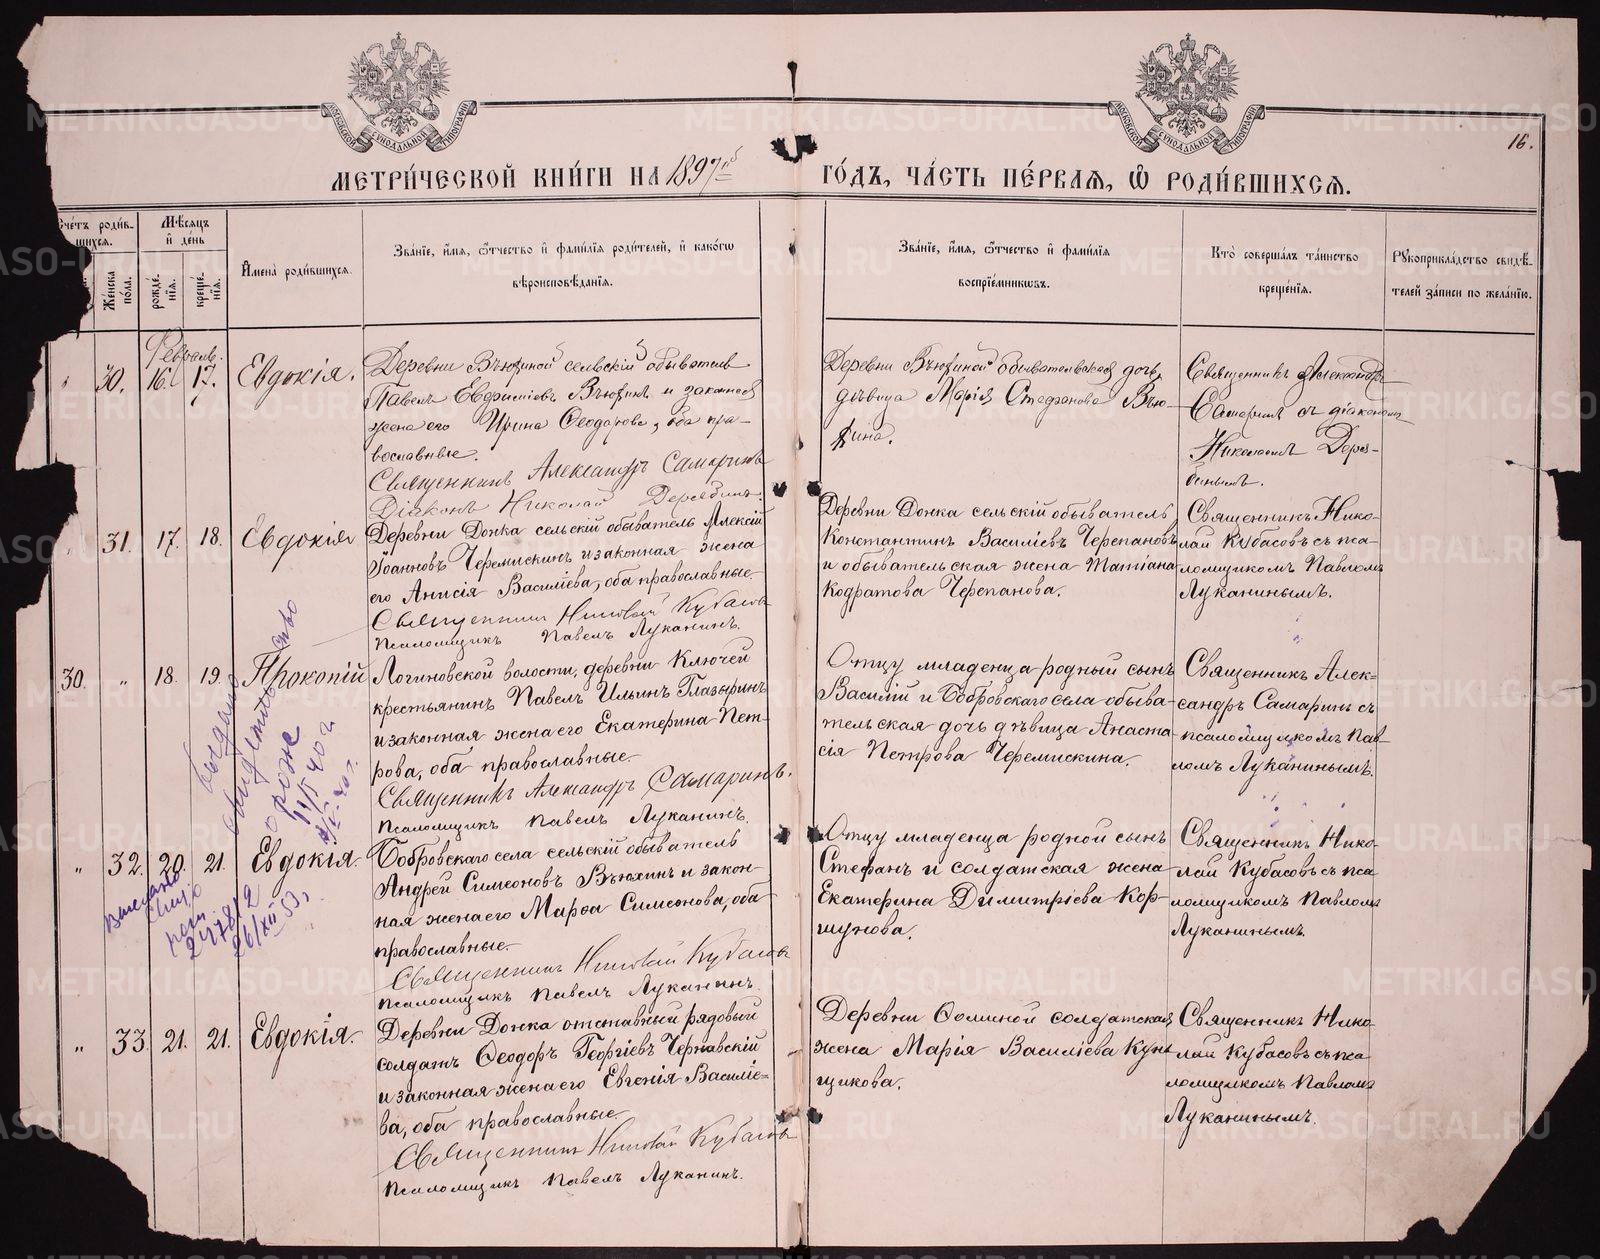 МЕТРИ́ЧЕСКОЙ КНИ́ГИ НА 1897й
ГО́ДЪ, ЧА́СТЬ ПЕ́РВАЯ, Ѡ РОДИ́ВШИХСЯ.
16.
Сче́тъ роди́в-
шихся.
Мѣ́сяцъ
и҆ де́нь
Же́нска
по́ла.
рожде́-
нїя.
креще́-
нїя.
И҆мена̀ роди́вшихся.
Зва́нїе, и҆́мя, ѻ҆́тчество и҆ фами́лїя роди́телей, и҆ како́гѡ
вѣроисповѣ́данїя.
Зва́нїе, и҆́мя, ѻ҆́тчество и҆ фами́лїя
воспрїе́мникѡвъ.
Кто̀ соверша́лъ та́инство
креще́нїя.
Рꙋкоприкла́дство свидѣ́-
телей за́писи по жела́нїю.
Февраль.
" 30. 16. 17. Евдокія.
Деревни Вьюхиной сельскій обыватель
Павелъ Евфиміевъ Вьюхинъ и законная
жена его Ирина Ѳеодорова, оба пра-
вославные.
Священникъ Александръ Самаринъ
Діаконъ Николай Дерябинъ.
Деревни Вьюхиной обывательская дочь
дѣвица Марія Стефанова Вью-
хина.
Священникъ Александръ
Самаринъ съ діакономъ
Николаемъ Деря-
бинымъ.
31. 17. 18. Евдокія
Деревни Донка сельскій обыватель Алексій
Іоанновъ Черемискинъ и законная жена
его Анисія Василіева, оба православные.
Священникъ Николай Кубасовъ
Псаломщикъ Павелъ Луканинъ.
Деревни Донка сельскій обыватель
Константинъ Василіевъ Черепановъ
и обывательская жена Татіана
Кодратова Черепанова.
Священникъ Нико-
лай Кубасовъ съ пса-
ломщикомъ Павломъ
Луканинымъ.
30. " 18. 19. Прокопій
Логиновской волости, деревни Ключей
крестьянинъ Павелъ Ильинъ Глазыринъ
и законная жена его Екатерина Пет-
рова, оба православные.
Священникъ Александръ Самаринъ.
Псаломщикъ Павелъ Луканинъ.
Отцу младенца родный сынъ
Василій и Бобровскаго села обыва-
тельская дочь дѣвица Анаста-
сія Петрова Черемискина.
Священникъ Алек-
сандръ Самаринъ съ
псаломщикомъ Пав-
ломъ Луканинымъ.
свидетельство
о рожд
" 32. 20. 21. Евдокія.
Бобровскаго села сельскій обыватель
Андрей Симеоновъ Вьюхинъ и закон-
ная жена его Марѳа Симеонова, оба
православные.
Священникъ Николай Кубасовъ
Псаломщикъ Павелъ Луканинъ.
Отцу младенца родной сынъ
Стефанъ и солдатская жена
Екатерина Димитріева Кор-
шунова.
Священникъ Нико-
лай Кубасовъ съ пса
ломщикомъ Павломъ
Луканинымъ.
26/XII 53г
" 33. 21. 21. Евдокія.
Деревни Донка отставный рядовый
солдатъ Ѳеодоръ Георгіевъ Чернавскій
и законная жена его Евгенія Василіе-
ва, оба православные.
Священникъ Николай Кубасовъ
Псаломщикъ Павелъ Луканинъ.
Деревни Ѳоминой солдатская
жена Марія Василіева Кун
щикова.
Священникъ Нико-
лай Кубасовъ съ пса
ломщикомъ Павломъ
Луканинымъ.
METRIKI.GASO-URAL.RU